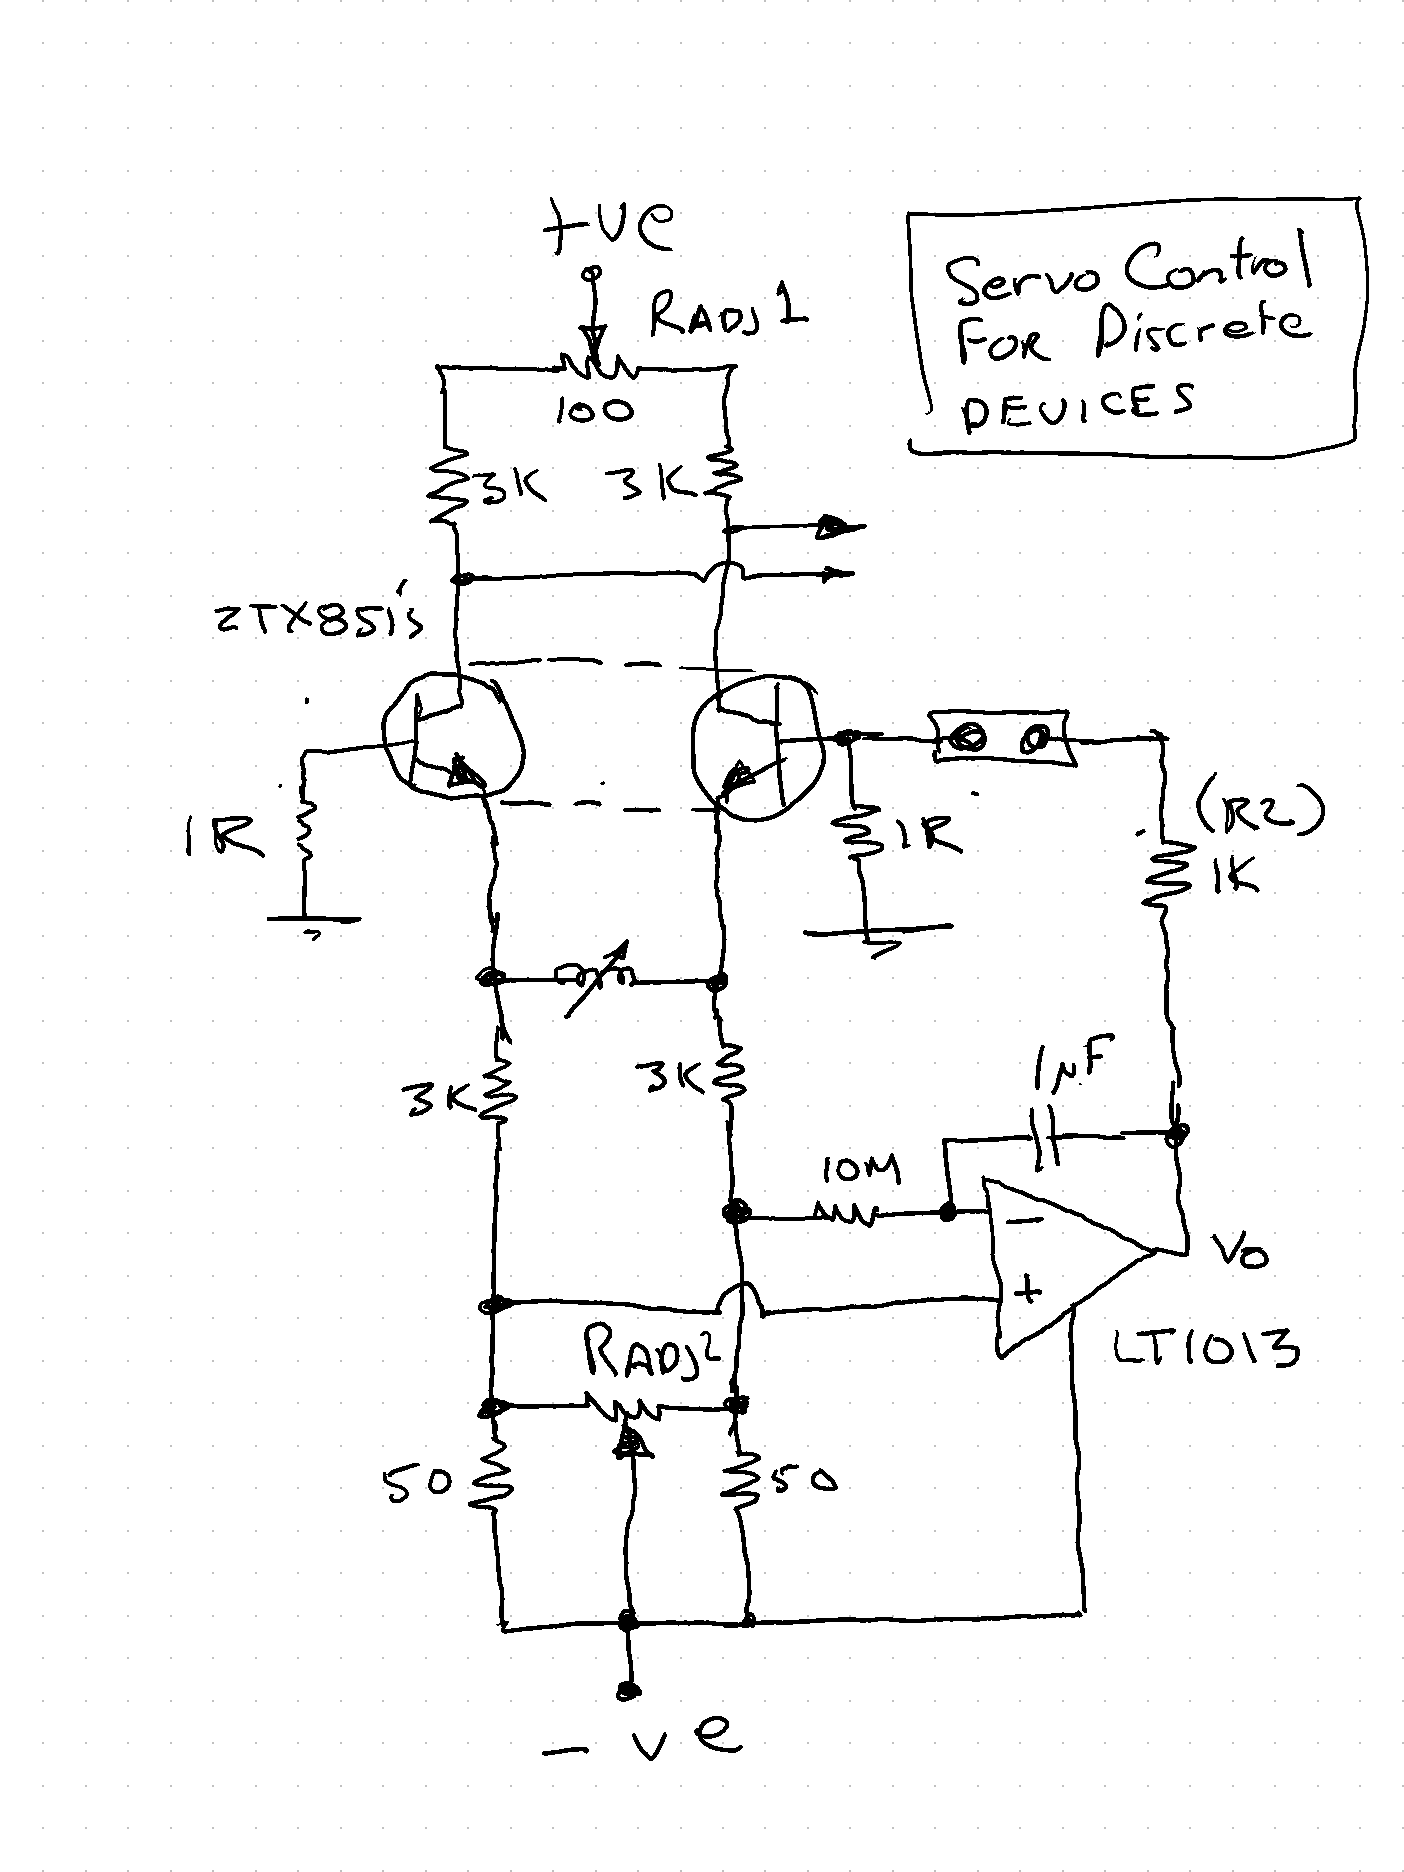 +ve
RADJ1
100
Servo Control
FOR Discrete
DEVICES
3K
3K
ZTX851's
1R
1R
(R2)
1K
3K
3K
1µF
10M
−
+
Vo
LT1013
RADJ2
50
50
- ve